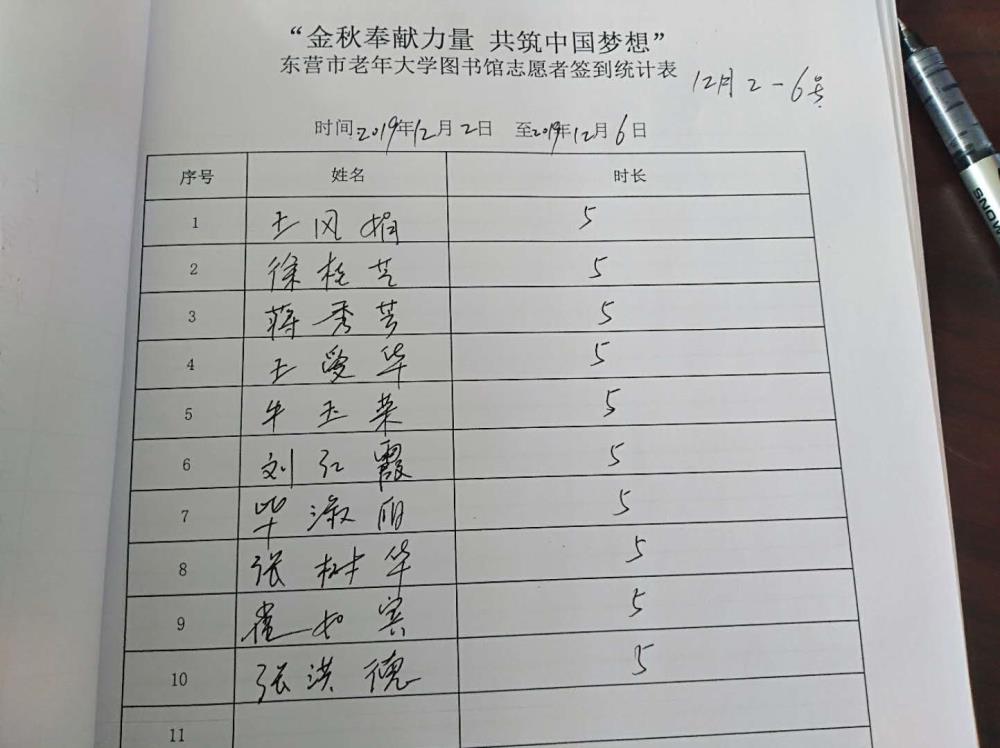 “金秋奉献力量 共筑中国梦想”
东营市老年大学图书馆志愿者签到统计表
12月2-6号
时间2019年12月2日 至2019年12月6日
序号 姓名 时长
1 王风娟 5
2 徐桂芝 5
3 蒋秀芸 5
4 王爱华 5
5 牛玉荣 5
6 刘红霞 5
7 毕淑明 5
8 张树华 5
9 崔如宾 5
10 张洪德 5
11
SNOW